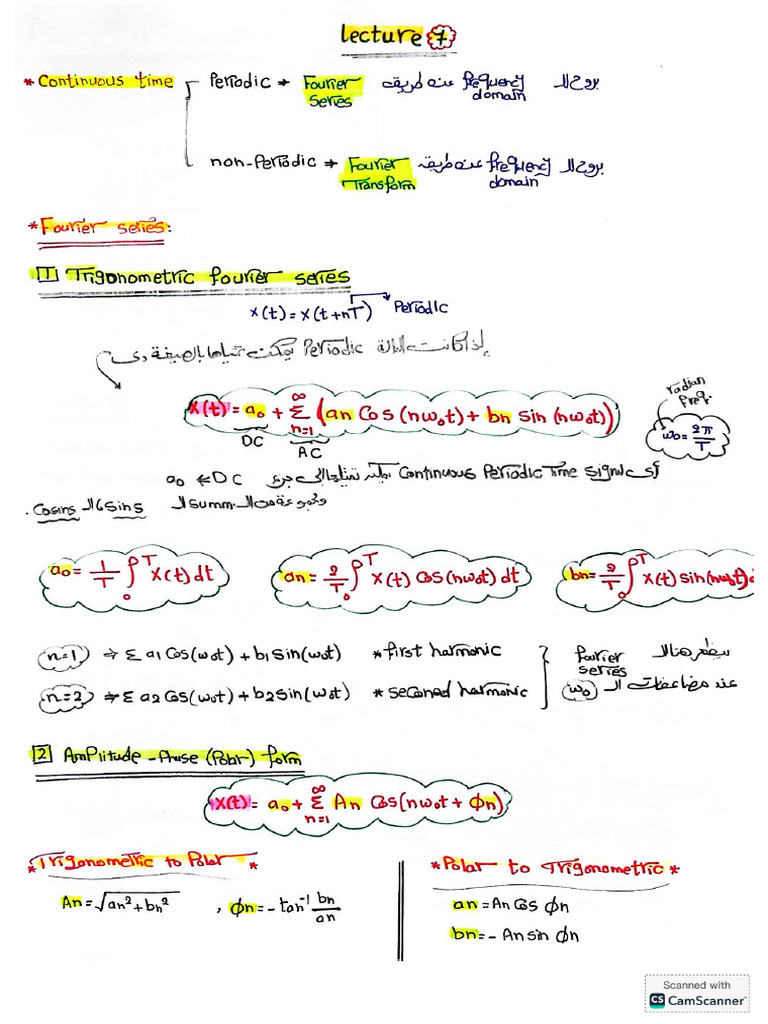 lecture 7
* Continuous time
Periodic → Fourier Series بروح الـ frequency domain عن طريقه
non-Periodic → Fourier Transform بروح الـ frequency domain عن طريقه
* Fourier series:
1 Trigonometric fourier series
x(t) = x(t+nT) → Periodic
إذا كانت الدالة Periodic يمكن تمثيلها بالصيغة دى
x(t) = a0 + Σ n=1 ∞ (an Cos(nω0t) + bn sin(nω0t))
DC AC
radian freq.
ω0 = 2π/T
أى Continuous Periodic Time signal تمثيلها إلى جزء DC ⇐ a0
ومجموعة من الـ summ. الـ sins و الـ Cosins.
a0 = 1/T ∫0T x(t) dt
an = 2/T ∫0T x(t) Cos(nω0t) dt
bn = 2/T ∫0T x(t) sin(nω0t) d
n=1 ⇒ Σ a1 Cos(ω0t) + b1 Sin(ω0t) * first harmonic
n=2 ⇒ Σ a2 Cos(ω0t) + b2 Sin(ω0t) * seconed harmonic
يظهر هنا الـ fourier series
عند مضاعفات الـ ω0
2 Amplitude - Phase (Polar) form
x(t) = a0 + Σ n=1 ∞ An Cos(nω0t + φn)
* Trigonometric to Polar *
An = √an² + bn² , φn = - tan⁻¹ bn/an
* Polar to Trigonometric *
an = An Cos φn
bn = - An sin φn
Scanned with
CS CamScanner